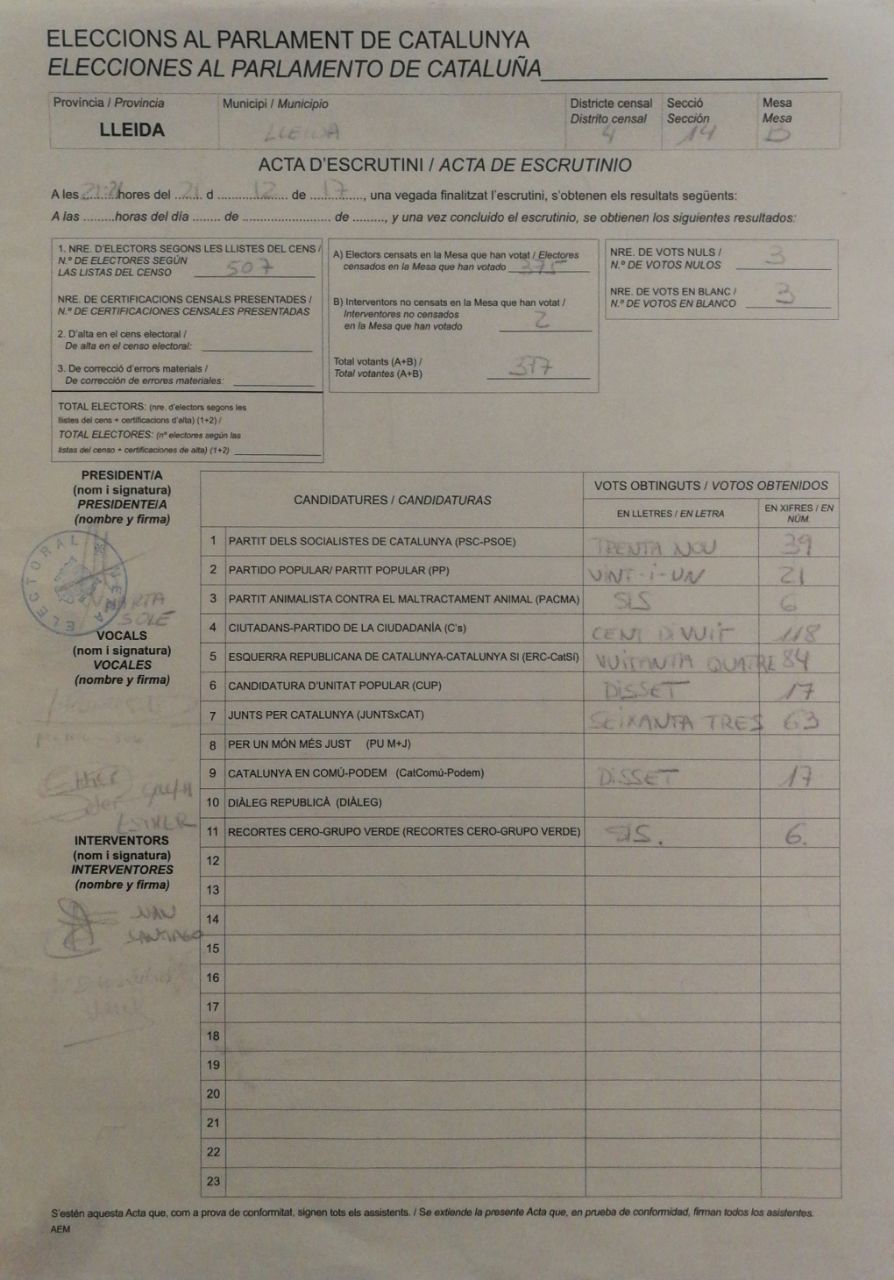 ELECCIONS AL PARLAMENT DE CATALUNYA
ELECCIONES AL PARLAMENTO DE CATALUÑA
Provincia / Provincia
LLEIDA
Municipi / Municipio
LLEIDA
Districte censal
Distrito censal
4
Secció
Sección
14
Mesa
Mesa
ACTA D'ESCRUTINI / ACTA DE ESCRUTINIO
A les ........hores del 21 d 12 de 17, una vegada finalitzat l'escrutini, s'obtenen els resultats següents:
A las .........horas del día ........ de ............................ de ........., y una vez concluido el escrutinio, se obtienen los siguientes resultados:
1. NRE. D'ELECTORS SEGONS LES LLISTES DEL CENS /
N.º DE ELECTORES SEGÚN
LAS LISTAS DEL CENSO 507
NRE. DE CERTIFICACIONS CENSALS PRESENTADES /
N.º DE CERTIFICACIONES CENSALES PRESENTADAS
2. D'alta en el cens electoral /
De alta en el censo electoral:
3. De correcció d'errors materials /
De corrección de errores materiales:
TOTAL ELECTORS: (nre. d'electors segons les
llistes del cens + certificacions d'alta) (1+2) /
TOTAL ELECTORES: (nº electores según las
listas del censo + certificaciones de alta) (1+2)
A) Electors censats en la Mesa que han votat / Electores
censados en la Mesa que han votado 375
B) Interventors no censats en la Mesa que han votat /
Interventores no censados
en la Mesa que han votado 2
Total votants (A+B) /
Total votantes (A+B) 377
NRE. DE VOTS NULS /
N.º DE VOTOS NULOS 3
NRE. DE VOTS EN BLANC /
N.º DE VOTOS EN BLANCO 3
PRESIDENT/A
(nom i signatura)
PRESIDENTE/A
(nombre y firma)
ELECTORAL
MARTA
SOLÉ
VOCALS
(nom i signatura)
VOCALES
(nombre y firma)
ESTHER
INTERVENTORS
(nom i signatura)
INTERVENTORES
(nombre y firma)
SANTIAGO
CANDIDATURES / CANDIDATURAS
VOTS OBTINGUTS / VOTOS OBTENIDOS
EN LLETRES / EN LETRA
EN XIFRES / EN NÚM.
1 PARTIT DELS SOCIALISTES DE CATALUNYA (PSC-PSOE) TRENTA NOU 39
2 PARTIDO POPULAR/ PARTIT POPULAR (PP) VINT-i-UN 21
3 PARTIT ANIMALISTA CONTRA EL MALTRACTAMENT ANIMAL (PACMA) SIS 6
4 CIUTADANS-PARTIDO DE LA CIUDADANÍA (C's) CENT DIVUIT 118
5 ESQUERRA REPUBLICANA DE CATALUNYA-CATALUNYA SI (ERC-CatSí) VUITANTA QUATRE 84
6 CANDIDATURA D'UNITAT POPULAR (CUP) DISSET 17
7 JUNTS PER CATALUNYA (JUNTSxCAT) SEIXANTA TRES 63
8 PER UN MÓN MÉS JUST (PU M+J)
9 CATALUNYA EN COMÚ-PODEM (CatComú-Podem) DISSET 17
10 DIÀLEG REPUBLICÀ (DIÀLEG)
11 RECORTES CERO-GRUPO VERDE (RECORTES CERO-GRUPO VERDE) SIS. 6.
12
13
14
15
16
17
18
19
20
21
22
23
S'estén aquesta Acta que, com a prova de conformitat, signen tots els assistents. / Se extiende la presente Acta que, en prueba de conformidad, firman todos los asistentes.
AEM